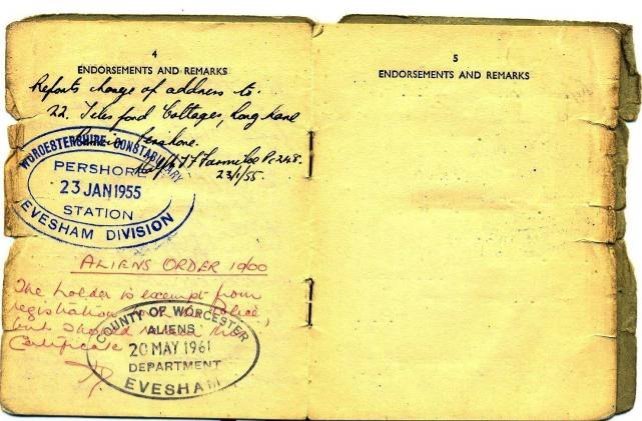 4
ENDORSEMENTS AND REMARKS
Reports change of address to.
22. Tilesford Cottages, Long Lane
Pershore.
Pc 248.
23/1/55.
WORCESTERSHIRE CONSTABULARY
PERSHORE
23 JAN 1955
STATION
EVESHAM DIVISION
ALIENS ORDER 1960
The holder is exempt from
registration with the Police,
but should retain this
Certificate
COUNTY OF WORCESTER
ALIENS
20 MAY 1961
DEPARTMENT
EVESHAM
5
ENDORSEMENTS AND REMARKS